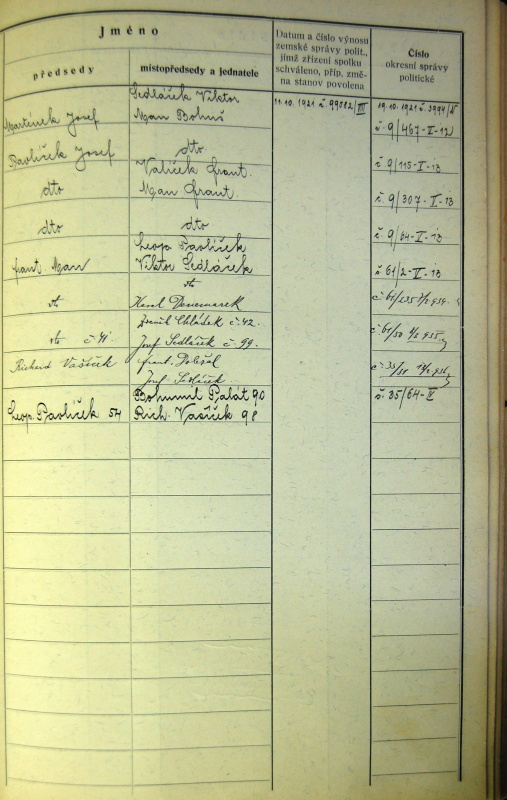 Jméno
předsedy
místopředsedy a jednatele
Datum a číslo výnosu
zemské správy polit.,
jímž zřízení spolku
schváleno, příp. změ-
na stanov povolena
Číslo
okresní správy
politické
Sedláček Viktor
11.10.1921 č. 99582/III
19.10.1921 č. 3994/
Martinek Josef
Man Bohuš
č. 9/467-V-12
Pavlíček Josef
dto
Vašíček frant.
č. 9/115-V-13
dto
Man frant.
č. 9/307-V-13
dto
dto
č. 9/64-V-13
Leop. Pavlíček
frant. Man
Viktor Sedláček
č. 61/2-V-13
dto
dto
Karel Denemarek
č. 61/
Chládek č. 42.
dto č. 41.
Josef Sedláček č. 99.
č. 61/
Richard Vašíček
frant. Dobšal
č. 35/
Josef Sedláček
Bohumil Palát 90
č. 35/64-V
Leop. Pavlíček 54
Rich. Vašíček 98